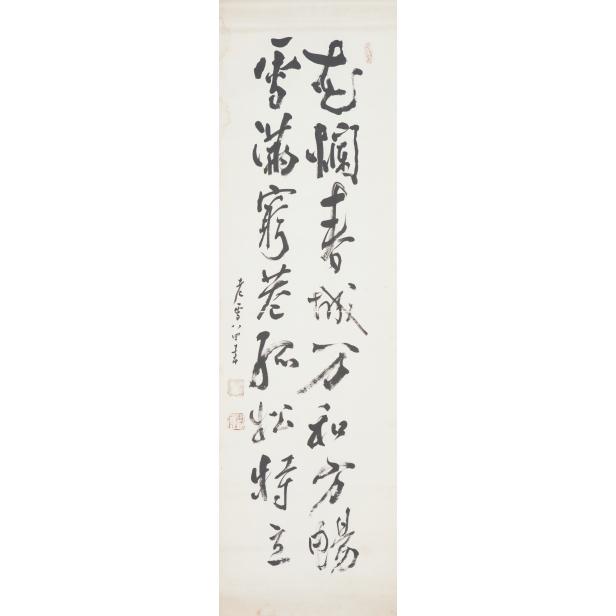 花爛春城万和方暢
雪満窮巷孤松特立
老雪八十書